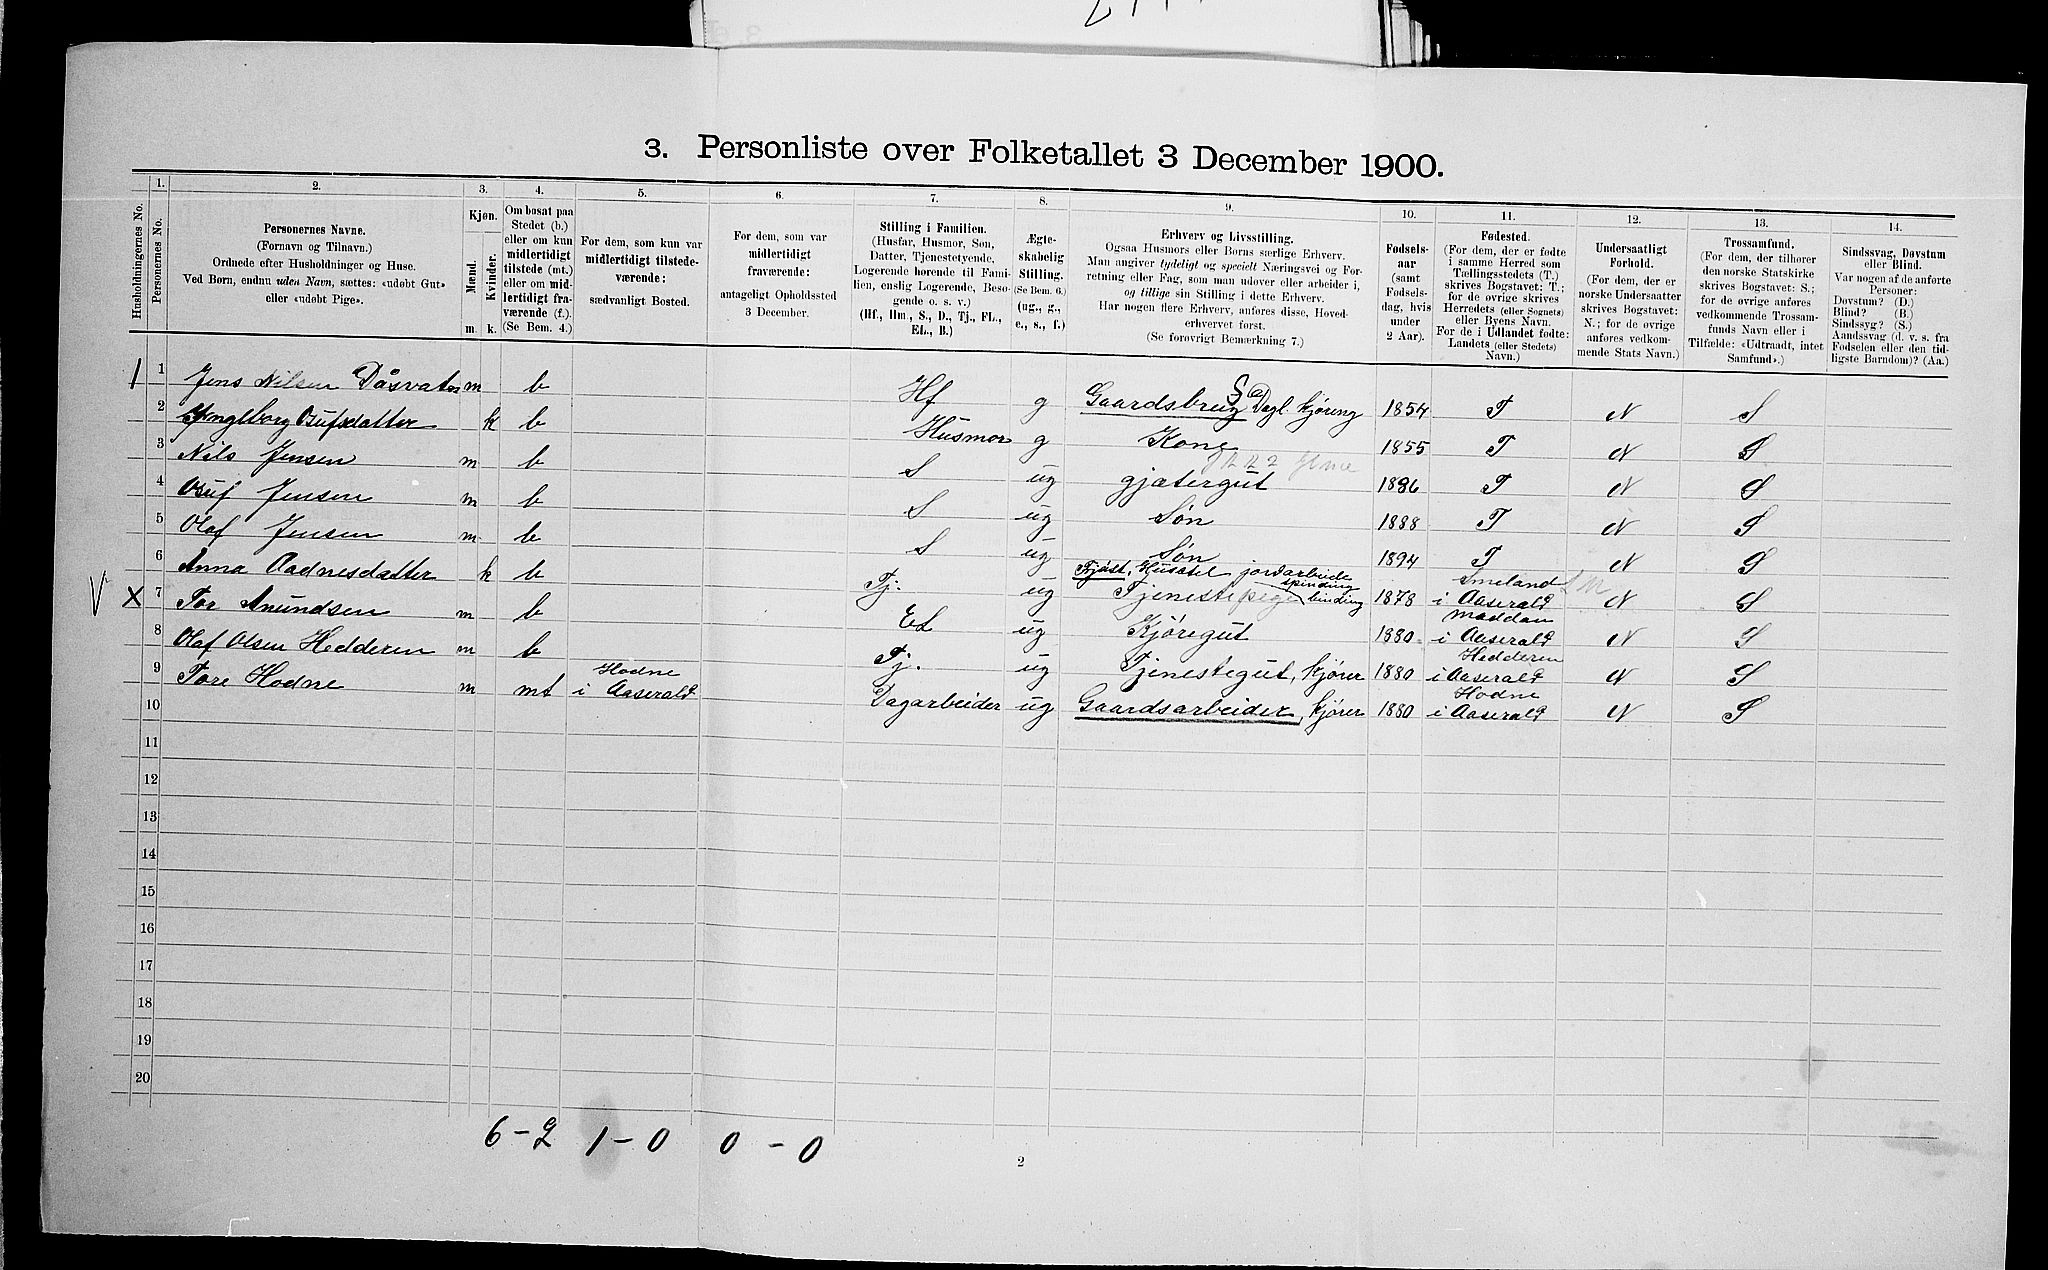 3. Personliste over Folketallet 3 December 1900.
Husholdningernes No.
1.
Personernes No.
2.
Personernes Navne.
(Fornavn og Tilnavn.)
Ordnede efter Husholdninger og Huse.
Ved Børn, endnu uden Navn, sættes: «udøbt Gut»
eller «udøbt Pige».
3.
Kjøn.
Mænd.
Kvinder.
m. k.
4.
Om bosat paa
Stedet (b.)
eller om kun
midlertidigt
tilstede (mt.)
eller om mid-
lertidigt fra-
værende (f.).
(Se Bem. 4.)
5.
For dem, som kun var
midlertidigt tilstede-
værende:
sædvanligt Bosted.
6.
For dem, som var
midlertidigt
fraværende:
antageligt Opholdssted
3 December.
7.
Stilling i Familien.
(Husfar, Husmor, Søn,
Datter, Tjenestetyende,
Logerende hørende til Fami-
lien, enslig Logerende, Besø-
gende o. s. v.)
(Hf., Hm., S., D., Tj., FL.,
EL., B.)
8.
Ægte-
skabelig
Stilling.
(Se Bem. 6.)
(ug., g.,
e., s., f.)
9.
Erhverv og Livsstilling.
Ogsaa Husmors eller Børns særlige Erhverv.
Man angiver tydeligt og specielt Næringsvei og For-
retning eller Fag, som man udøver eller arbeider i,
og tillige sin Stilling i dette Erhverv.
Har nogen flere Erhverv, anføres disse, Hoved-
erhvervet først.
(Se forøvrigt Bemærkning 7.)
10.
Fødsels-
aar
(samt
Fødsels-
dag, hvis
under
2 Aar).
11.
Fødested.
(For dem, der er fødte
i samme Herred som
Tællingsstedets (T.)
skrives Bogstavet: T.;
for de øvrige skrives
Herredets (eller Sognets)
eller Byens Navn.
For de i Udlandet fødte:
Landets (eller Stedets)
Navn.)
12.
Undersaatligt
Forhold.
(For dem, der er
norske Undersaatter
skrives Bogstavet:
N.; for de øvrige
anføres vedkom-
mende Stats Navn.)
13.
Trossamfund.
(For dem, der tilhører
den norske Statskirke
skrives Bogstavet: S.;
for de øvrige anføres
vedkommende Trossam-
funds Navn eller i
Tilfælde: «Udtraadt, intet
Samfund».)
14.
Sindssvag, Døvstum
eller Blind.
Var nogen af de anførte
Personer:
Døvstum? (D.)
Blind? (B.)
Sindssyg? (S.)
Aandssvag (d. v. s. fra
Fødselen eller den tid-
ligste Barndom)? (Aa.)
1 1 Jens Nilsen Dåsvatn m b Hf g Gaardsbrug Dagl. kjøring 1854 T N S
2 Yngleborg Osufsdatter k b Husmor g Kone 1855 T N S
3 Nils Jensen m b S ug gjætergut 1886 T N S
4 Osuf Jensen m b S ug Søn 1888 T N S
5 Olaf Jensen m b S ug Søn 1894 T N S
6 Anna Aadnesdatter k b Tj. ug Fjøsst, Husstel jordarbeide spinding Tjenestepige binding 1878 Smeland i Aaserald N S
V X 7 Tor Anundsen m b EL ug Kjøregut 1880 Moddan i Aaserald N S
8 Olaf Olsen Hedderen m b Tj. ug Tjenestegut, kjører 1880 Hedderen i Aaserald N S
9 Tore Hodne m mt Hodne i Aaserald Dagarbeider ug Gaardsarbeider, kjører 1880 Hodne i Aaserald N S
10
11
12
13
14
15
16
17
18
19
20
6 - 2 1 - 0 0 - 0
2